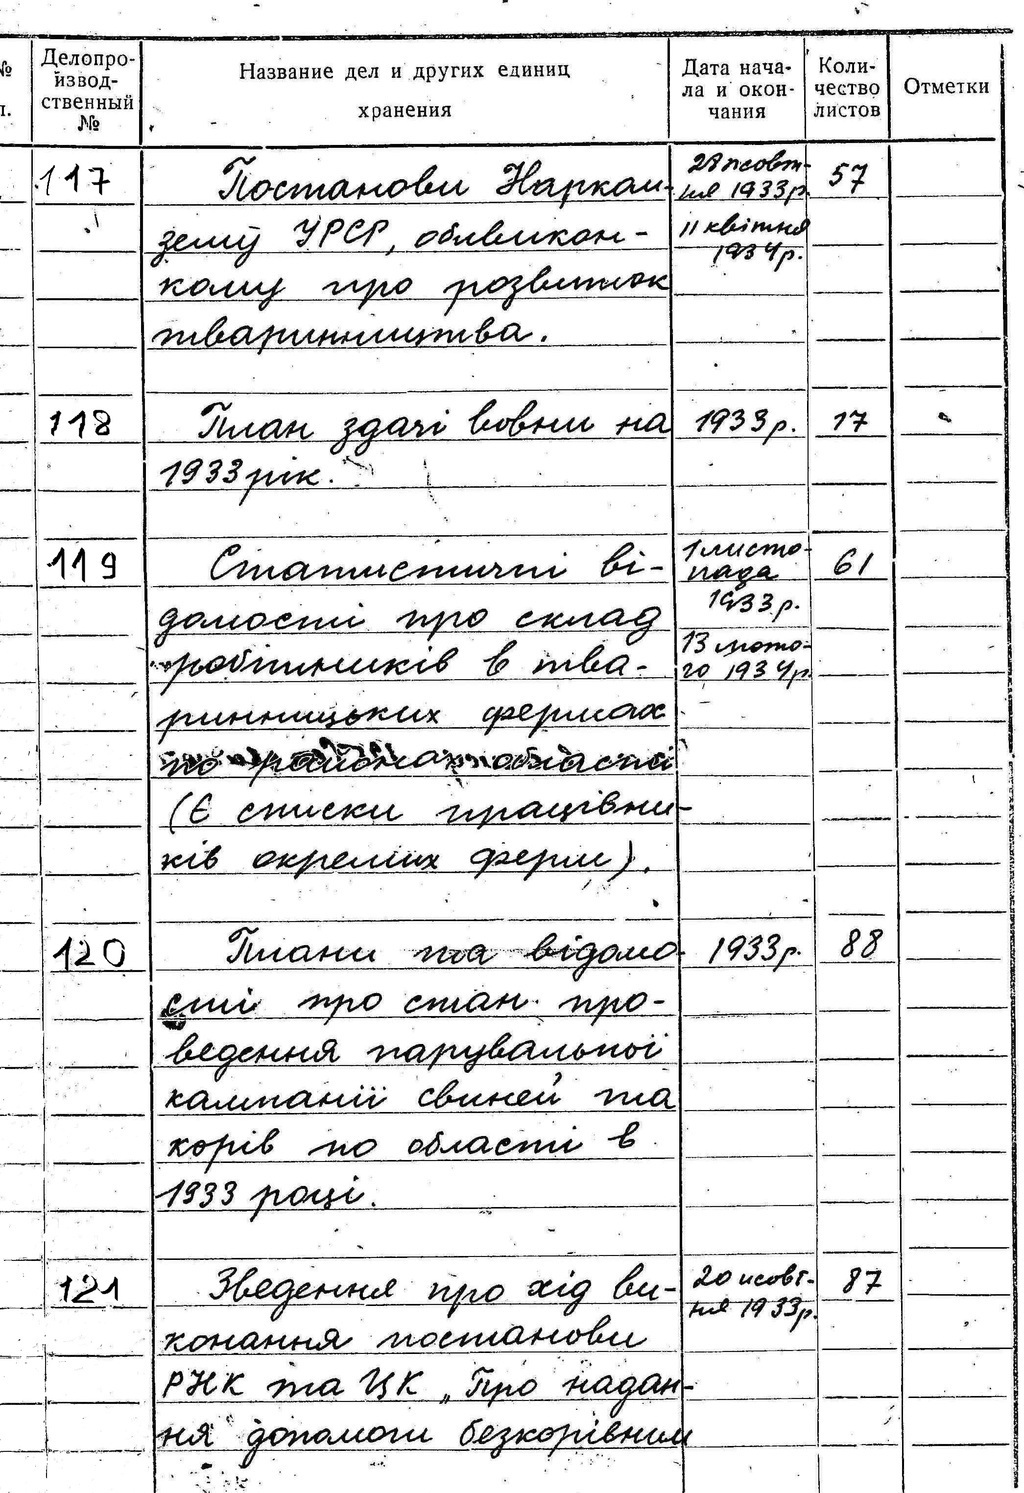 №
п.
Делопро-
извод-
ственный
№
Название дел и других единиц
хранения
Дата нача-
ла и окон-
чания
Коли-
чество
листов
Отметки
117
Постанови Нарком-
зему УРСР, облвикон-
кому про розвиток
тваринництва.
28 жовт-
ня 1933р.
11 квітня
1934р.
57
118
План здачі вовни на
1933 рік.
1933р.
17
119
Статистичні ві-
домості про склад
робітників в тва-
ринницьких фермах
по районах області
(Є списки працівни-
ків окремих ферм).
1 листо-
пада
1933р.
13 лютo-
го 1934р.
61
120
Плани та відомо-
сті про стан про-
ведення парувальної
кампанії свиней та
корів по області в
1933 році.
1933р.
88
121
Зведення про хід ви-
конання постанови
РНК та ЦК „Про надан-
ня допомоги безкорівним
20 жовт-
ня 1933р.
87